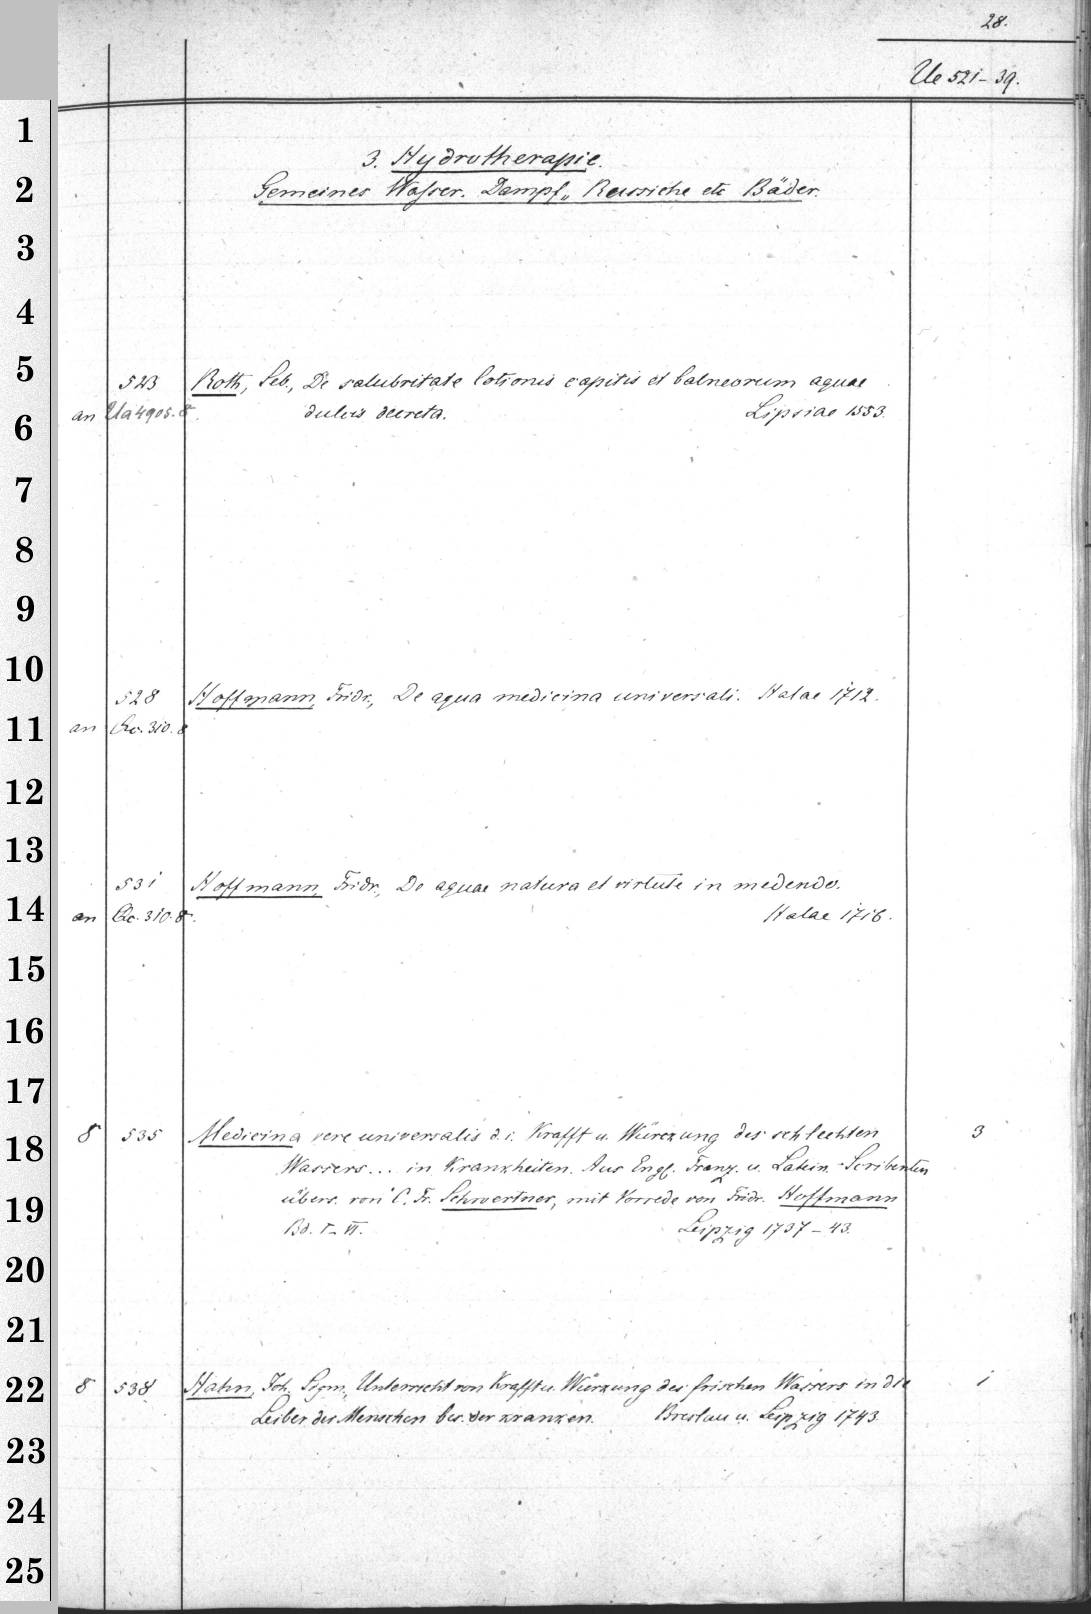 28.
Ue 521-39.
1
3. Hydrotherapie.
2
Gemeines Wasser. Dampf„ Russiche etc Bäder.
3
4
5
523 Roth, Seb., De salubritate lotionis capitis et balneorum aquae
6
an Ua 4905. 8. dulcis decreta. Lipsiae 1553.
7
8
9
10
528 Hoffmann, Fridr., De aqua medicina universali. Halae 1712.
11
an 310. 8
12
13
531 Hoffmann, Fridr., De aquae natura et virtute in medendo.
14
an 310. 8. Halae 1716.
15
16
17
18
8 535 Medicina vere universalis d. i. Krafft u. Würckung des schlechten 3
Wassers... in Krankheiten. Aus Engl. Franz. u. Latein. Scribenten
19
übers. von C. Fr. Schwertner, mit Vorrede von Fridr. Hoffmann
Bd. I-VI. Leipzig 1737-43.
20
21
22
8 538 Hahn, Joh. Sigm., Unterricht von Krafft u. Würkung des frischen Wassers in die 1
Leiber der Menschen bes. der kranken. Breslau u. Leipzig 1743.
23
24
25